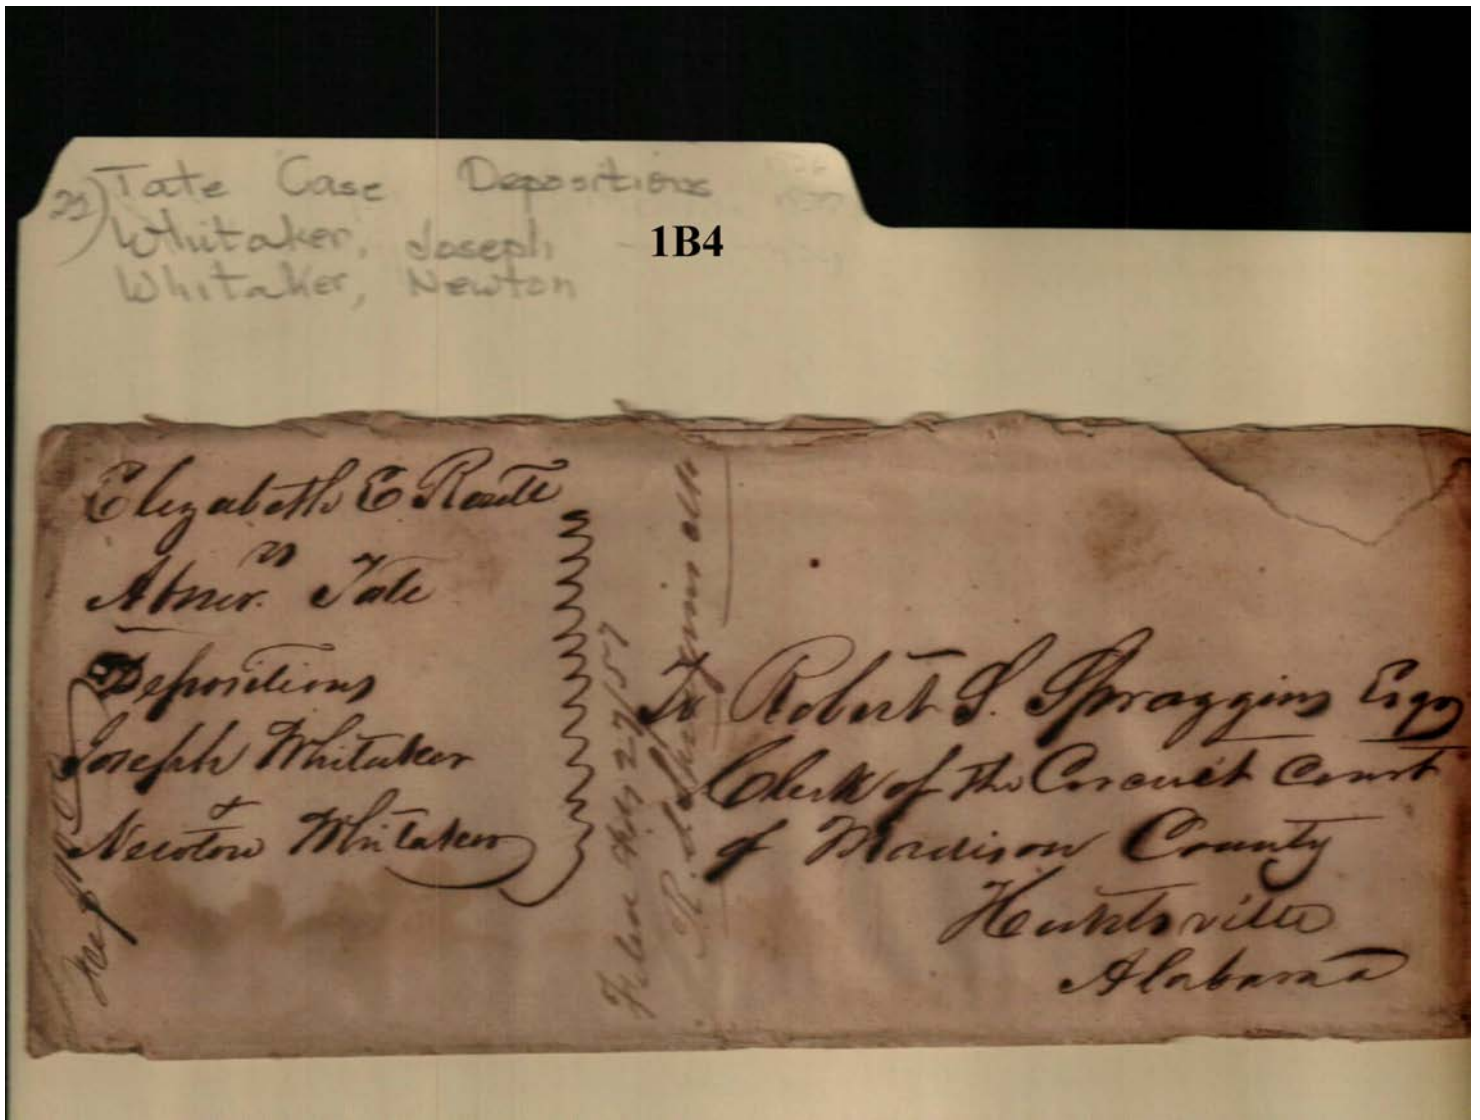 22) Tate Case Depositions
Whitaker, Joseph
Whitaker, Newton
1B4
Elizabeth E Routt
vs
Abner Tate
Depositions
Joseph Whitaker
&
Newton Whitaker
Filed 27/57
To Robert S. Spraggins Esqr
Clerk of the Corcuit Court
of Madison County
Huntsville
Alabama